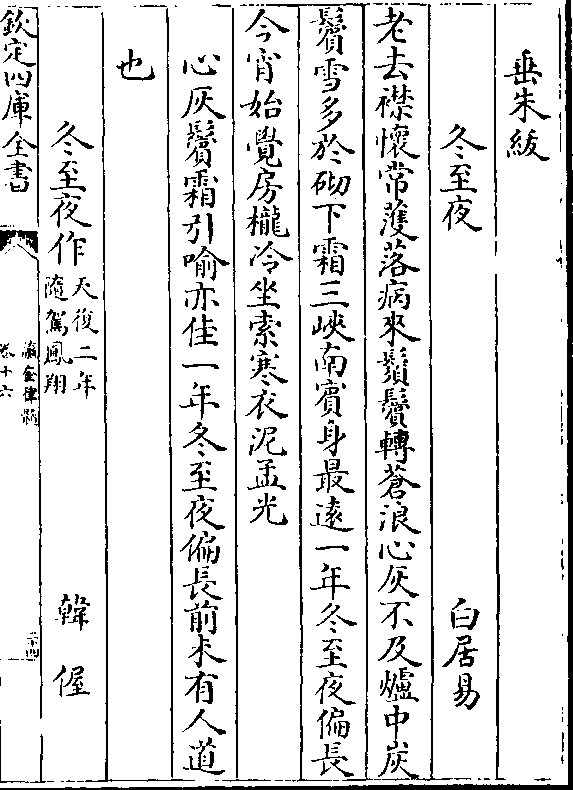 垂朱紱
冬至夜 白居易
老去襟懷常蒦落病來鬚鬢轉蒼浪心灰不及爐中炭
鬢雪多於砌下霜三峽南賓身最遠一年冬至夜偏長
今宵始覺房櫳冷坐索寒衣泥孟光
心灰鬢霜引喻亦佳一年冬至夜偏長前未有人道
也
冬至夜作 天復二年隨駕鳳翔 韓偓
欽定四庫全書 瀛奎律髓 卷十六 二十四